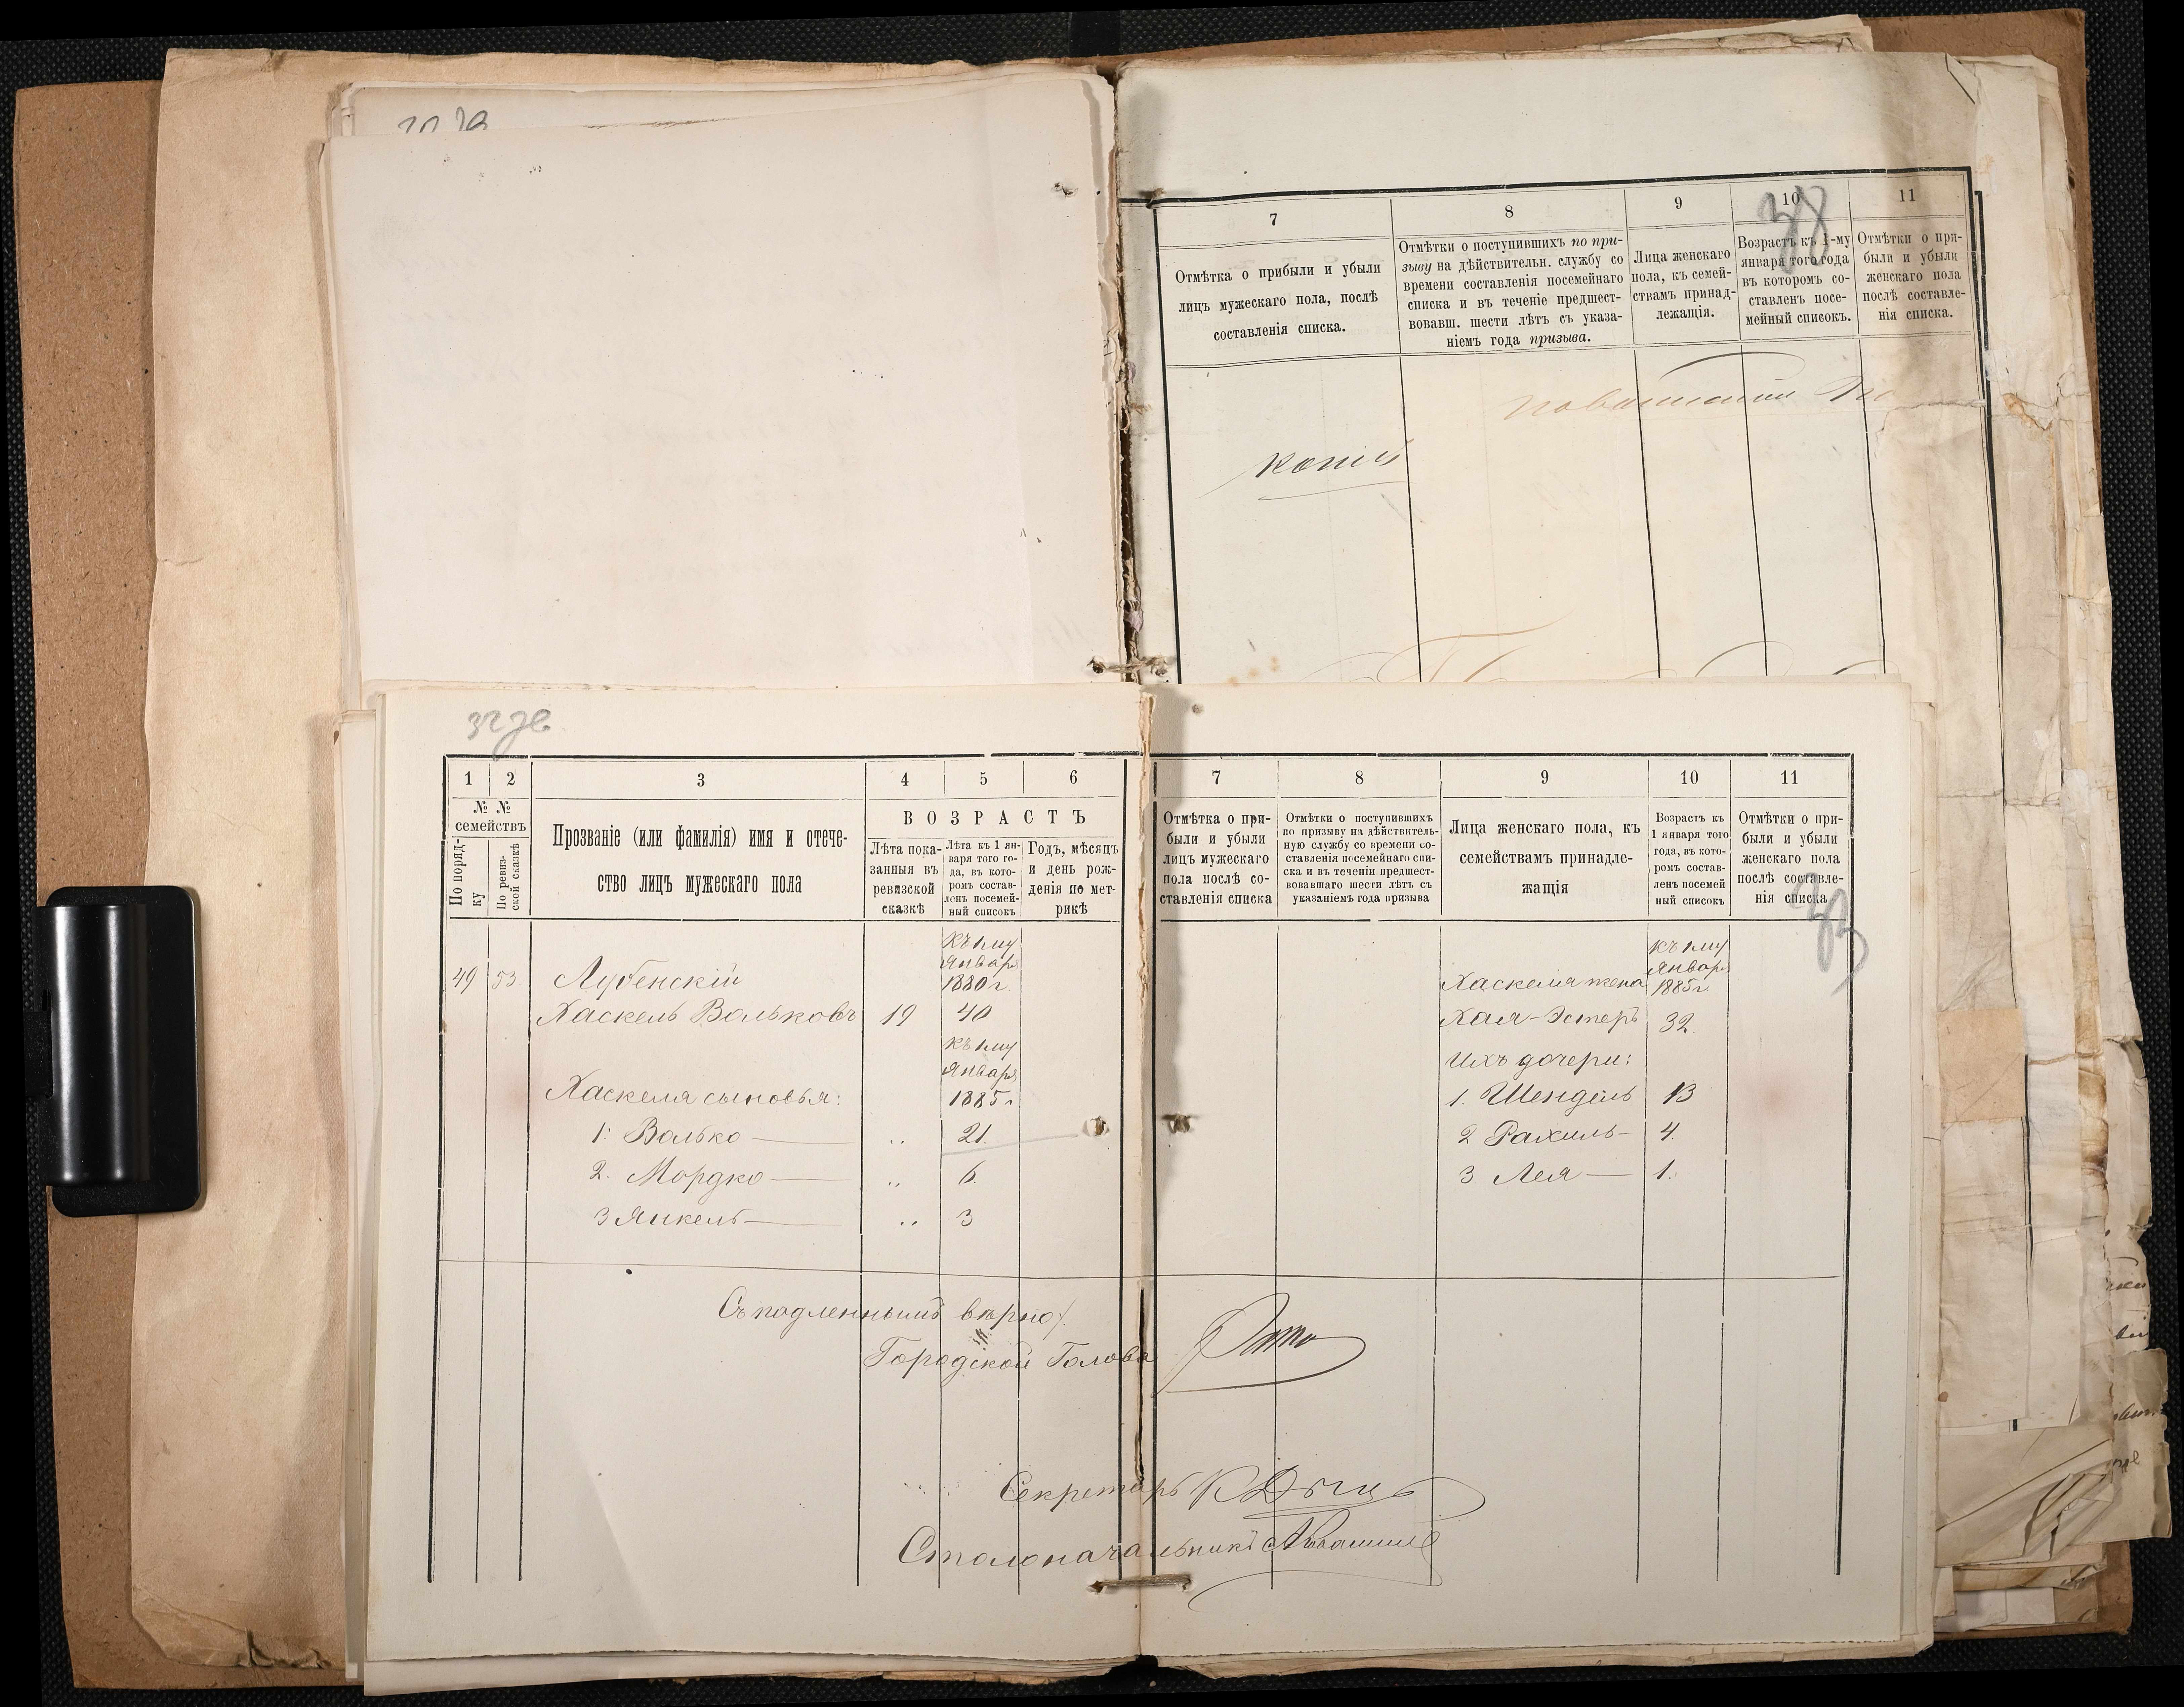 38
7
8
9
10
11
Отмѣтка о прибыли и убыли
лицъ мужескаго пола, послѣ
составленія списка.
Отмѣтки о поступившихъ по при-
зыву на дѣйствительн. службу со
времени составленія посемейнаго
списка и въ теченіе предшест-
вовавш. шести лѣтъ съ указа-
ніемъ года призыва.
Лица женскаго
пола, къ семей-
ствамъ принад-
лежащія.
Возрастъ къ 1-му
января того года
въ которомъ со-
ставленъ посе-
мейный списокъ.
Отмѣтки о при-
были и убыли
женскаго пола
послѣ составле-
нія списка.
1
2
3
4
5
6
7
8
9
10
11
№ №
семействъ
По поряд-
ку
По ревиз-
ской сказкѣ
Прозваніе (или фамилія) имя и отече-
ство лицъ мужескаго пола
ВОЗРАСТЪ
Лѣта пока-
занныя въ
ревизской
сказкѣ
Лѣта къ 1 ян-
варя того го-
да, въ кото-
ромъ состав-
ленъ посемей-
ный списокъ
Годъ, мѣсяцъ
и день рож-
денія по мет-
рикѣ
Отмѣтка о при-
были и убыли
лицъ мужескаго
пола послѣ со-
ставленія списка
Отмѣтки о поступившихъ
по призыву на дѣйствитель-
ную службу со времени со-
ставленія посемейнаго спи-
ска и въ теченіи предшест-
вовавшаго шести лѣтъ съ
указаніемъ года призыва
Лица женскаго пола, къ
семействамъ принадле-
жащія
Возрастъ къ
1 января того
года, въ кото-
ромъ состав-
ленъ посемей
ный списокъ
Отмѣтки о при-
были и убыли
женскаго пола
послѣ составле-
нія списка
къ 1му
Январ
1880 г.
49 53 Лубенскій
Хаскель Вольковъ 19 40
къ 1му
Января
1885 г
Хаскеля сыновья:
1. Волько — „ 21.
2. Мордко — „ 6.
3 Янкель — „ 3
къ 1му
Январ
1885 г.
Хаскеля жена
Хая-Эстеръ 32.
Ихъ дочери:
1. Шендель 13
2 Рахиль — 4.
3 Лея — 1.
Съ подленнымъ вѣрно
Городской Голова
Секретарь
Столоначальникъ